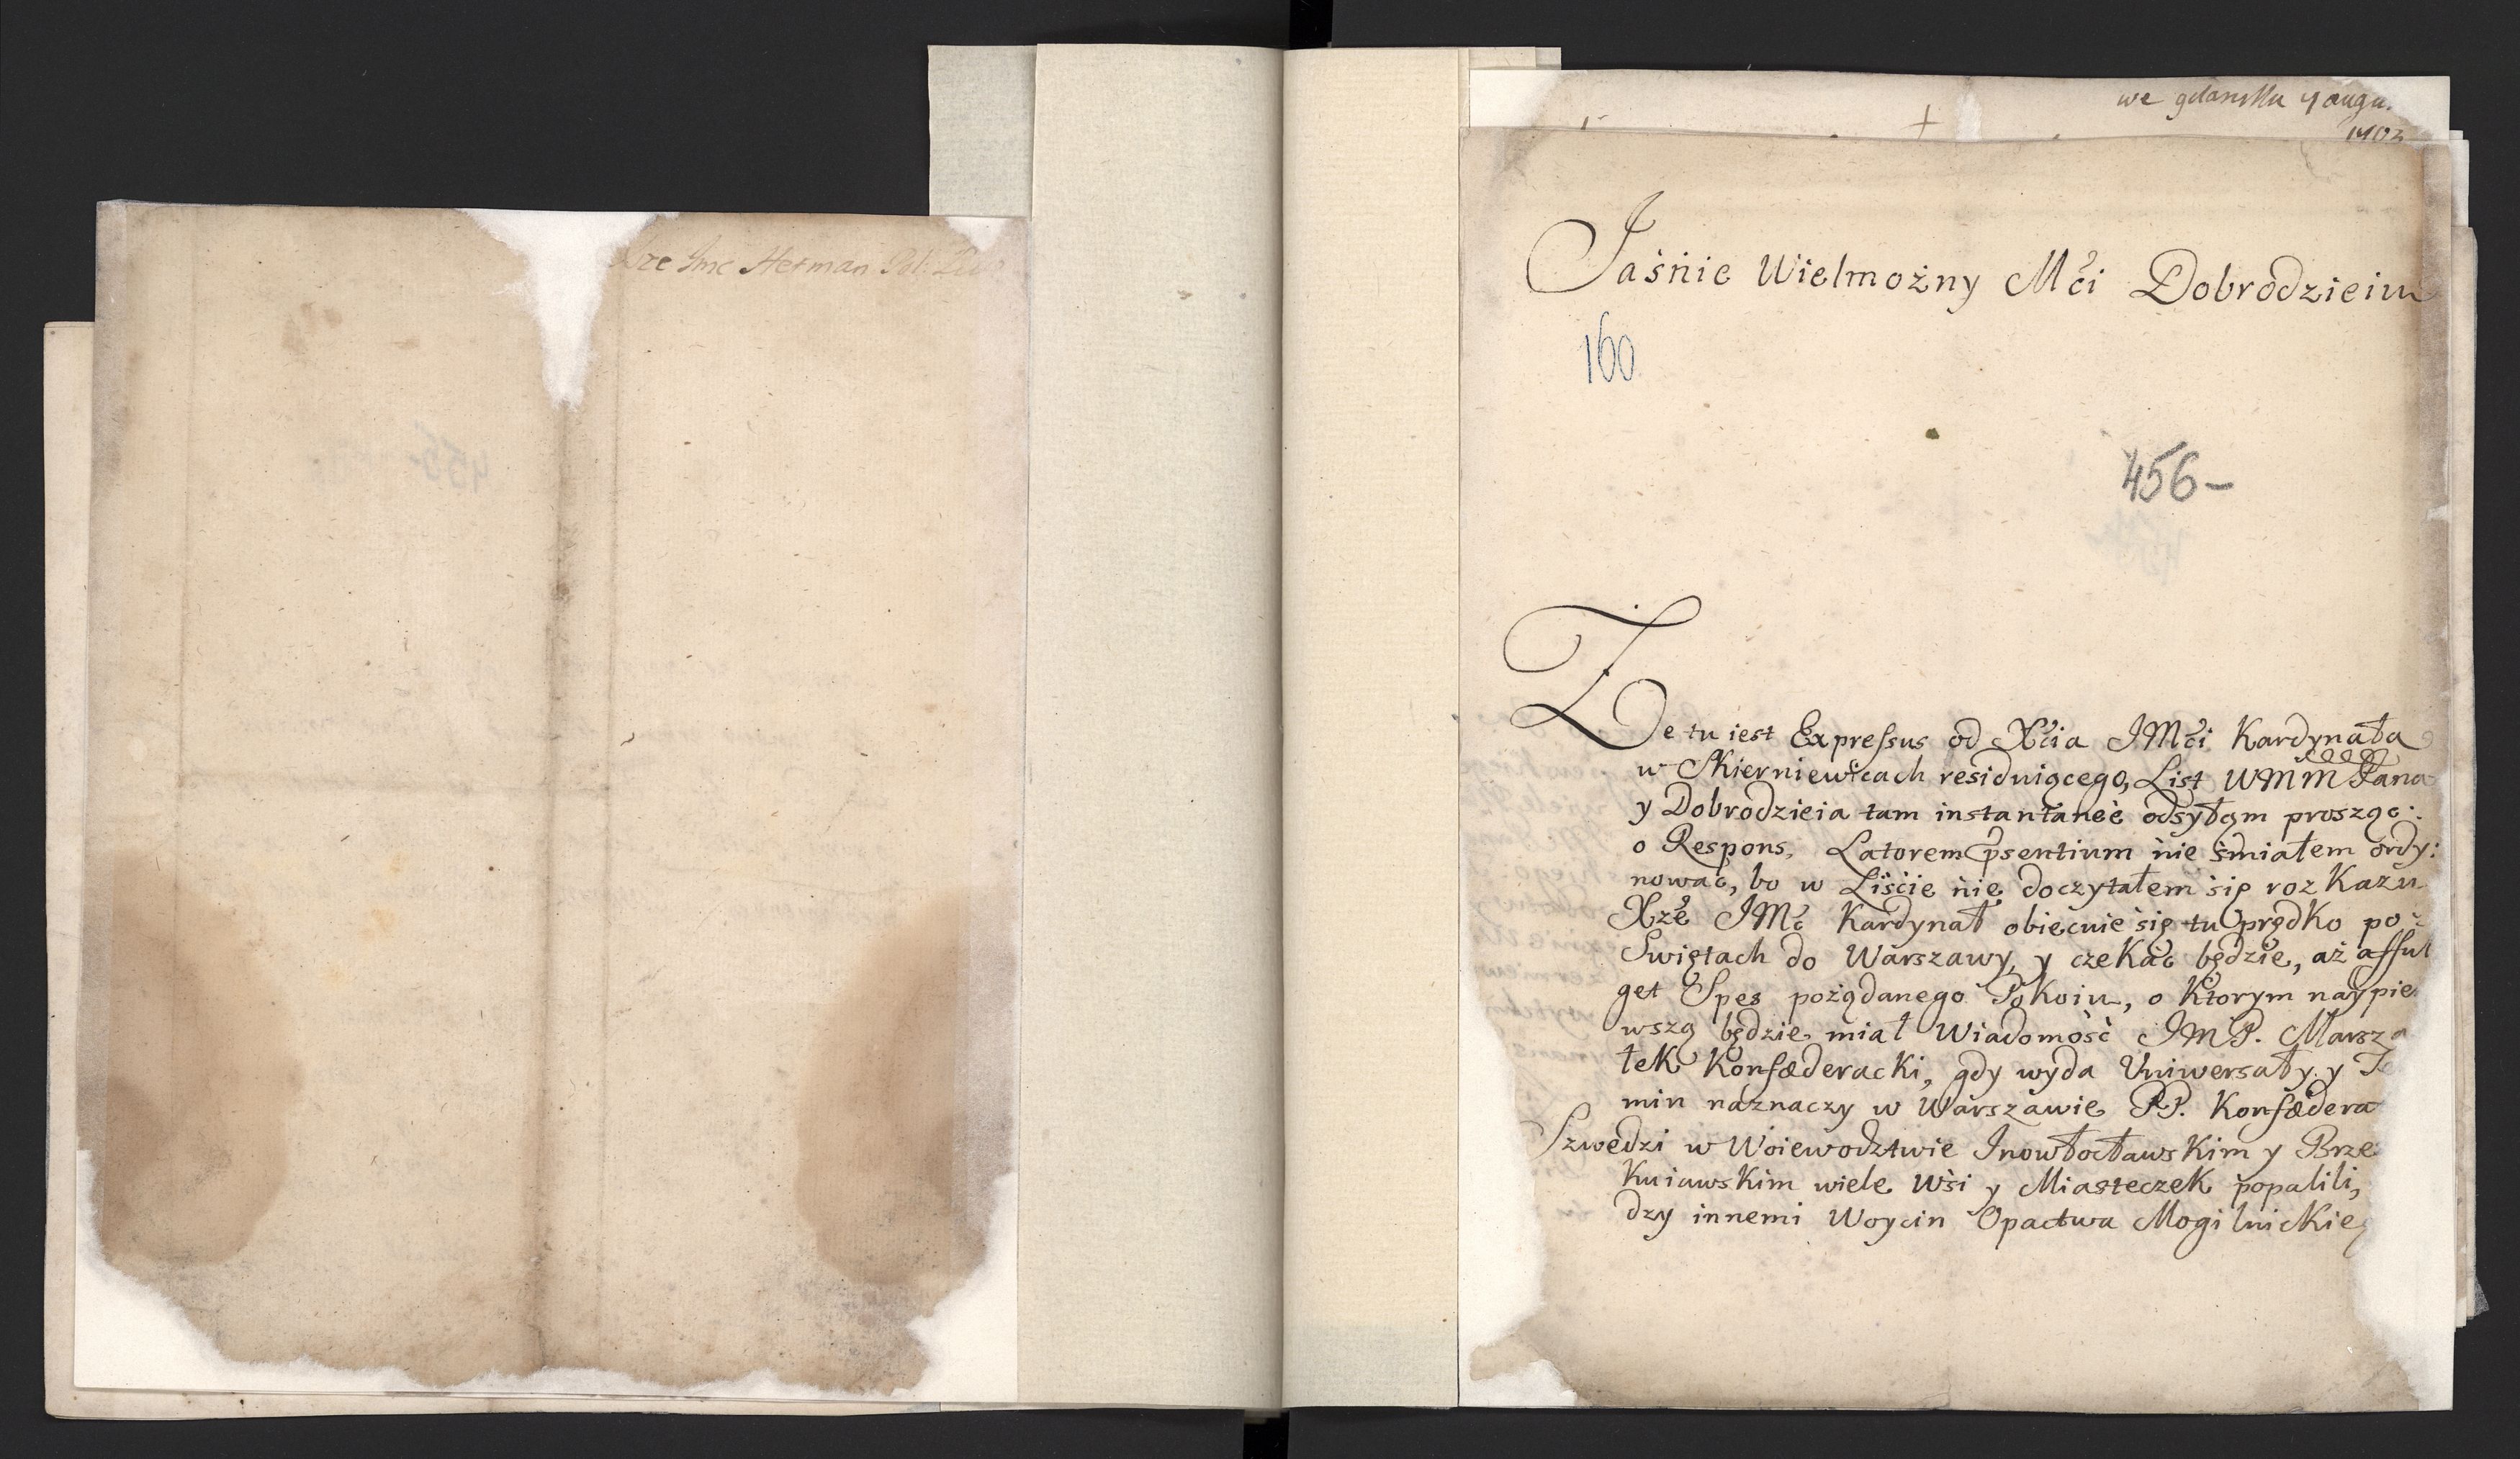 Xze Jmc Hetman Pol:
455
we gdansku 4 augu.
1703
Jaśnie Wielmożny Mći Dobrodzieiu
160
456-
Ze tu iest Expressus od Xcia JMći Kardynała
w Skierniewicach residuiącego, List WMM Pana
y Dobrodzieia tam instantanèe odsyłąm prosząc:
o Respons, Latorem p̄sentium nie śmiałem ordy:
nować, bo w Liście nie doczytałem się rozkazu
Xże JMć Kardynał obiecuie się tu prędko po
Swiętach do Warszawy, y czekać będzie, aż afful
get Spes pożądanego Pokoiu, o Ktorym naypie
wszą będzie miał Wiadomość JMP. Marsza
łek Konfæderacki, gdy wyda Uniwersały y Te
min naznaczy w Warszawie PP. Konfædera
Szwedzi w Woiewodztwie Jnowłocławskim y Brze
Kuiawskim wiele Wśi y Miasteczek popalili,
dzy innemi Woycin Opactwa Mogilnickieg